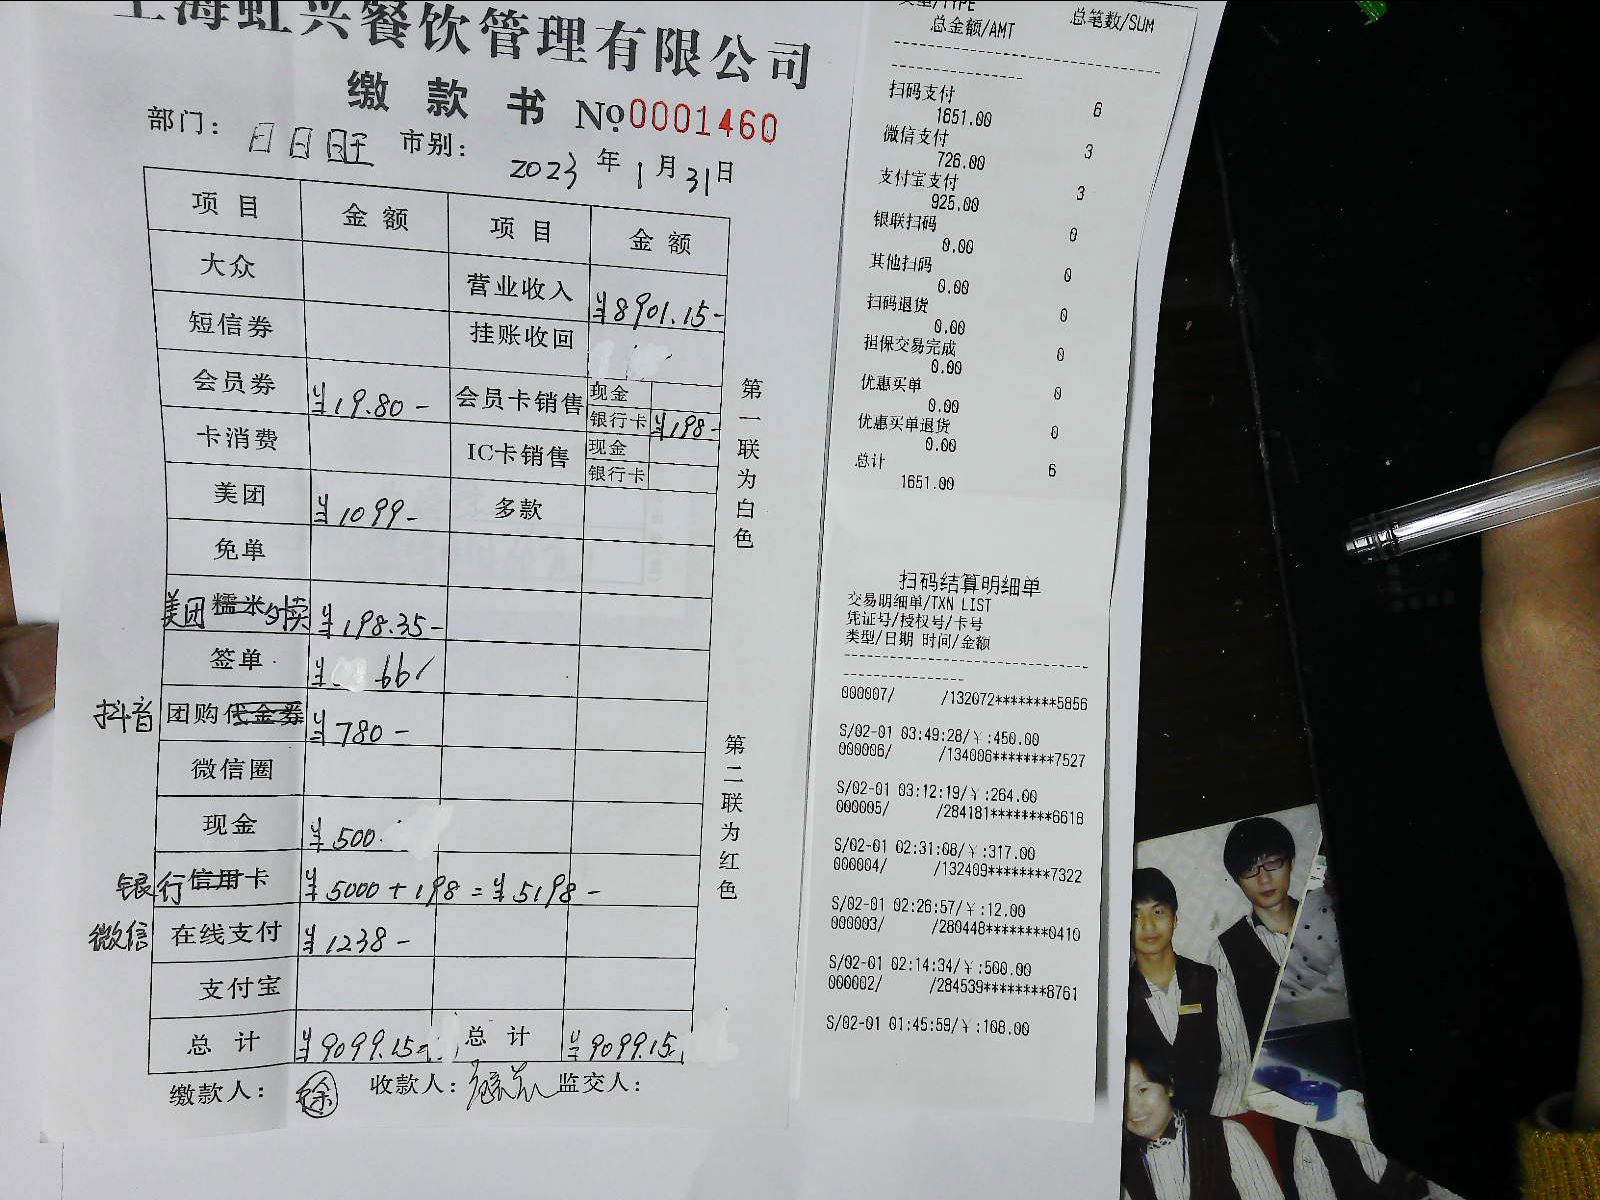 上海虹兴餐饮管理有限公司
缴款书 No.0001460
部门: 日日旺 市别: 2023年1月31日
项目 金额 项目 金额
大众 营业收入 ¥8901.15-
短信券 挂账收回
会员券 ¥19.80- 会员卡销售 现金
银行卡 ¥198-
卡消费 IC卡销售 现金
银行卡
美团 ¥1099- 多款
免单
美团 糯米 外卖 ¥198.35-
签单 ¥ 66/
抖音 团购代金券 ¥780-
微信圈
现金 ¥500.
银行信用卡 ¥5000+198=¥5198-
微信 在线支付 ¥1238-
支付宝
总计 ¥9099.15 总计 ¥9099.15
缴款人: 徐 收款人: 监交人:
第一联为白色
第二联为红色
类型/TYPE 总笔数/SUM
总金额/AMT
扫码支付 6
1651.00
微信支付 3
726.00
支付宝支付 3
925.00
银联扫码 0
0.00
其他扫码 0
0.00
扫码退货 0
0.00
担保交易完成 0
0.00
优惠买单 0
0.00
优惠买单退货 0
0.00
总计 6
1651.00
扫码结算明细单
交易明细单/TXN LIST
凭证号/授权号/卡号
类型/日期 时间/金额
000007/ /132072********5856
S/02-01 03:49:28/¥:450.00
000006/ /134006********7527
S/02-01 03:12:19/¥:264.00
000005/ /284181********6618
S/02-01 02:31:08/¥:317.00
000004/ /132409********7322
S/02-01 02:26:57/¥:12.00
000003/ /280448********0410
S/02-01 02:14:34/¥:500.00
000002/ /284539********8761
S/02-01 01:45:59/¥:108.00